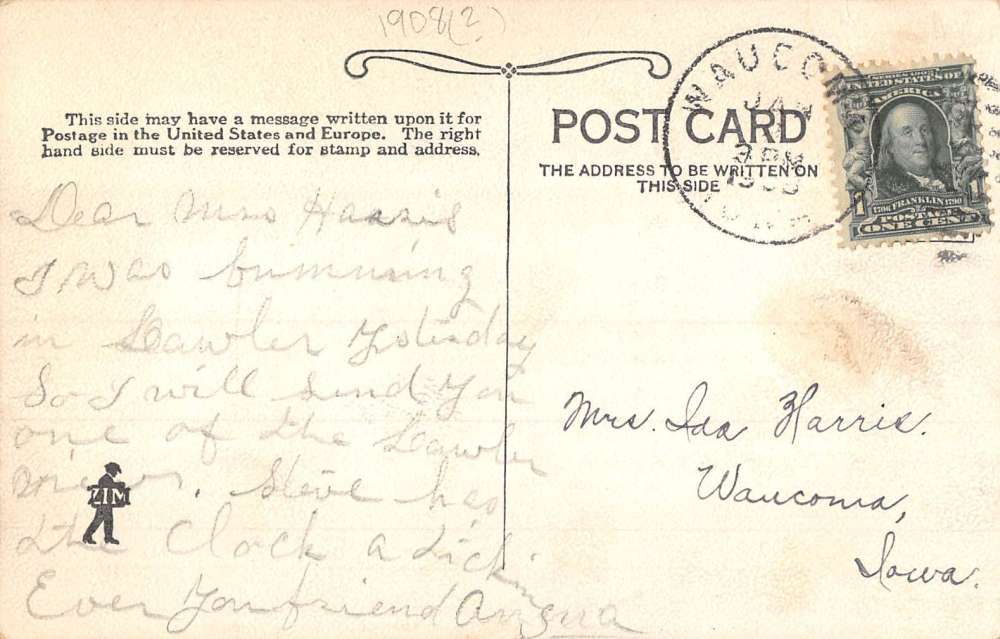 1908(?)
This side may have a message written upon it for
Postage in the United States and Europe. The right
hand side must be reserved for stamp and address.
POST CARD
THE ADDRESS TO BE WRITTEN ON
THIS SIDE
WAUCO
JAN
3 PM
SERIES 1902
UNITED STATES OF
AMERICA
1 1
1706 FRANKLIN 1790
POSTAGE
ONE CENT
Dear Mrs Haaris
I was bumming
in Lawler Ystirday
So I will send you
one of the Lawler
. Steve has
the Clock a tickin
Ever You friend
ZIM
Mrs. Ida Harris.
Waucoma,
Iowa.